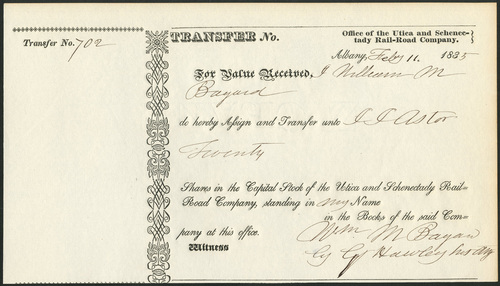 Transfer No. 702
TRANSFER No.
Office of the Utica and Schenec-
tady Rail-Road Company.
Albany, Feby 11. 1835
For Value Received, I William M
Bayard
do hereby Assign and Transfer unto J J Astor
Twenty
Shares in the Capital Stock of the Utica and Schenectady Rail-
Road Company, standing in my Name
in the Books of the said Com-
pany at this office.
Wm M Bayard
Witness
by G Hawley his Atty